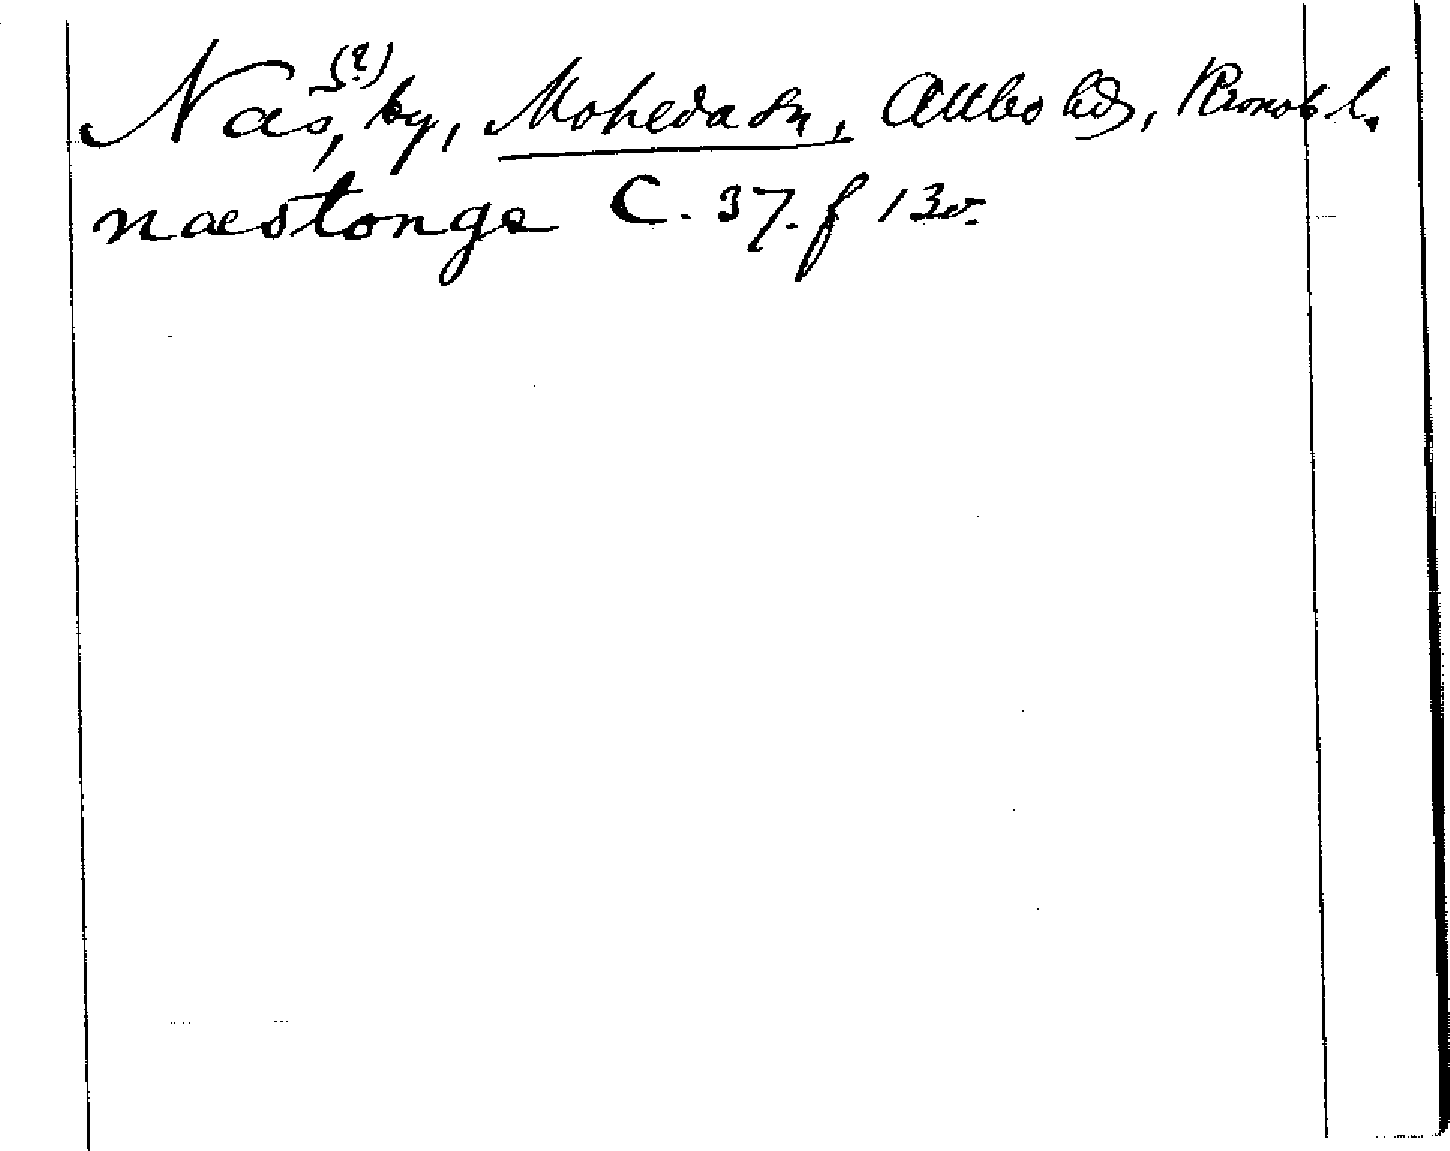 Nas(?), by, Moheda sn, Allbo hd, Kronob l.
næstonge C. 37. f 13v.